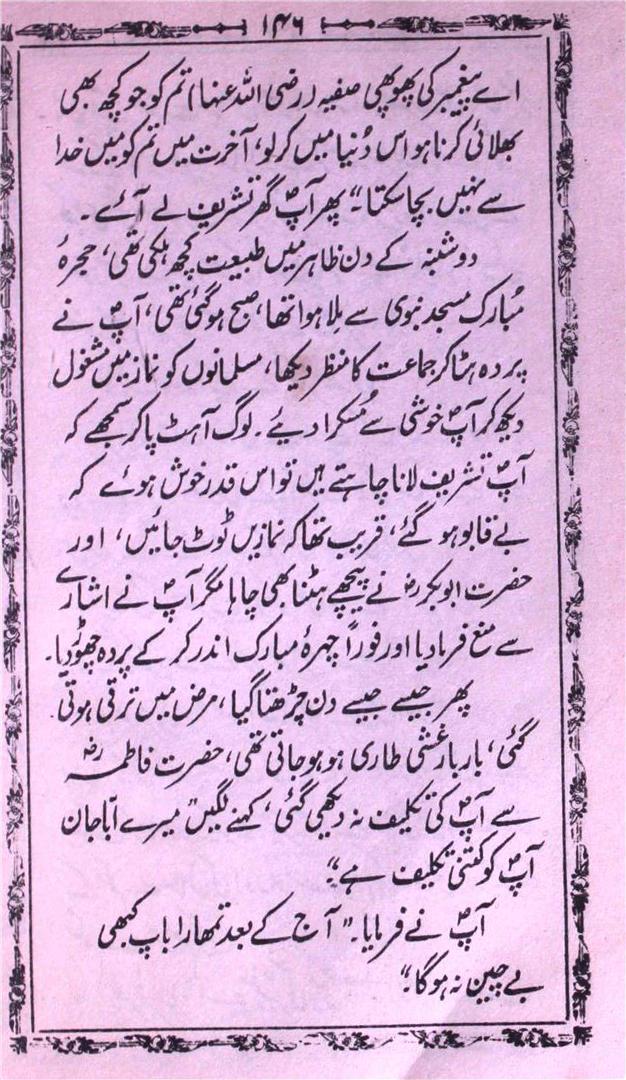 ۱۴۶
اے پیغمبر کی پھوپھی صفیہ (رضی اللہ عنہا) تم کو جو کچھ بھی
بھلائی کرنا ہو اس دُنیا میں کر لو، آخرت میں تم کو میں خدا
سے نہیں بچا سکتا۔“ پھر آپؐ گھر تشریف لے آئے۔
دو شنبہ کے دن ظاہر میں طبیعت کچھ ہلکی تھی، حجرۂ
مُبارک مسجد نبوی سے ملا ہوا تھا، صبح ہو گئی تھی، آپؐ نے
پردہ ہٹا کر جماعت کا منظر دیکھا، مسلمانوں کو نماز میں مشغول
دیکھ کر آپؐ خوشی سے مُسکرا دیے۔ لوگ آہٹ پا کر سمجھے کہ
آپؐ تشریف لانا چاہتے ہیں تو اس قدر خوش ہوئے کہ
بے قابو ہو گئے، قریب تھا کہ نمازیں ٹوٹ جائیں، اور
حضرت ابوبکرؓ نے پیچھے ہٹنا بھی چاہا مگر آپؐ نے اشارے
سے منع فرما دیا اور فوراً چہرۂ مبارک اندر کر کے پردہ چھوڑ دیا۔
پھر جیسے جیسے دن چڑھتا گیا، مرض میں ترقی ہوتی
گئی، بار بار غشی طاری ہو ہو جاتی تھی، حضرت فاطمہؓ
سے آپؐ کی تکلیف نہ دیکھی گئی، کہنے لگیں ”میرے ابّا جان
آپؐ کو کتنی تکلیف ہے“
آپؐ نے فرمایا۔ ”آج کے بعد تمہارا باپ کبھی
بے چین نہ ہوگا۔“